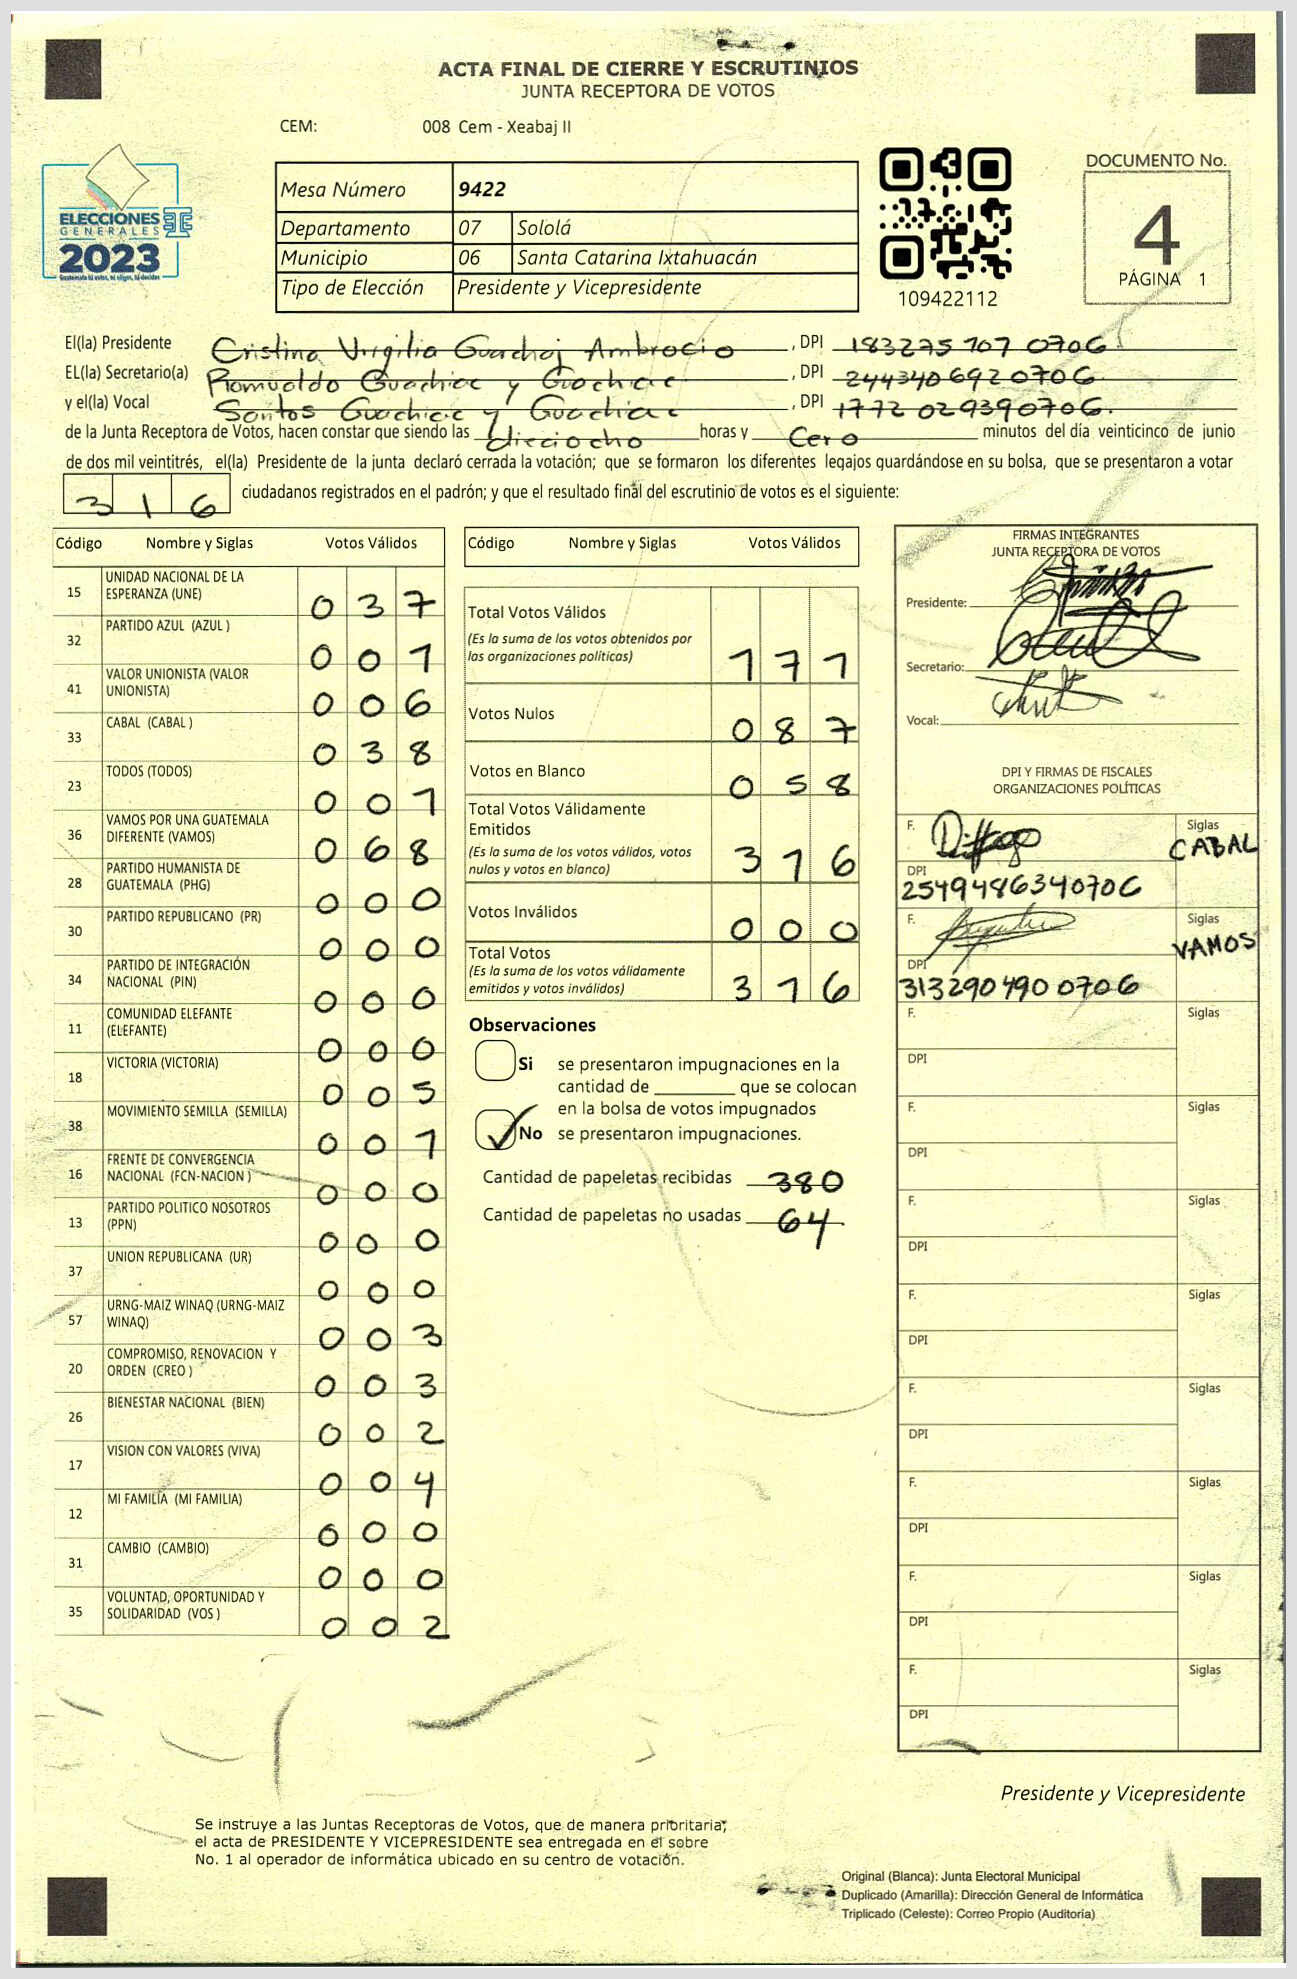 ACTA FINAL DE CIERRE Y ESCRUTINIOS
JUNTA RECEPTORA DE VOTOS
CEM: 008 Cem - Xeabaj II
ELECCIONES
GENERALES
2023
Mesa Número 9422
Departamento 07 Sololá
Municipio 06 Santa Catarina Ixtahuacán
Tipo de Elección Presidente y Vicepresidente
109422112
DOCUMENTO No.
4
PÁGINA 1
El(la) Presidente Cristina Virgilia Guachaj Ambrocio, DPI 183275107 0706
EL(la) Secretario(a) Romualdo Guachiac y Guachiac, DPI 2443406920706
y el(la) Vocal Santos Guachiac y Guachiac, DPI 1772 029390706.
de la Junta Receptora de Votos, hacen constar que siendo las dieciocho horas y Cero minutos del día veinticinco de junio
de dos mil veintitrés, el(la) Presidente de la junta declaró cerrada la votación; que se formaron los diferentes legajos guardándose en su bolsa, que se presentaron a votar
316 ciudadanos registrados en el padrón; y que el resultado final del escrutinio de votos es el siguiente:
Código Nombre y Siglas Votos Válidos
15 UNIDAD NACIONAL DE LA ESPERANZA (UNE) 037
32 PARTIDO AZUL (AZUL ) 001
41 VALOR UNIONISTA (VALOR UNIONISTA) 006
33 CABAL (CABAL ) 038
23 TODOS (TODOS) 001
36 VAMOS POR UNA GUATEMALA DIFERENTE (VAMOS) 068
28 PARTIDO HUMANISTA DE GUATEMALA (PHG) 000
30 PARTIDO REPUBLICANO (PR) 000
34 PARTIDO DE INTEGRACIÓN NACIONAL (PIN) 000
11 COMUNIDAD ELEFANTE (ELEFANTE) 000
18 VICTORIA (VICTORIA) 005
38 MOVIMIENTO SEMILLA (SEMILLA) 001
16 FRENTE DE CONVERGENCIA NACIONAL (FCN-NACION ) 000
13 PARTIDO POLITICO NOSOTROS (PPN) 000
37 UNION REPUBLICANA (UR) 000
57 URNG-MAIZ WINAQ (URNG-MAIZ WINAQ) 003
20 COMPROMISO, RENOVACION Y ORDEN (CREO ) 003
26 BIENESTAR NACIONAL (BIEN) 002
17 VISION CON VALORES (VIVA) 004
12 MI FAMILIA (MI FAMILIA) 000
31 CAMBIO (CAMBIO) 000
35 VOLUNTAD, OPORTUNIDAD Y SOLIDARIDAD (VOS ) 002
Código Nombre y Siglas Votos Válidos
Total Votos Válidos
(Es la suma de los votos obtenidos por
las organizaciones políticas) 171
Votos Nulos 087
Votos en Blanco 058
Total Votos Válidamente
Emitidos
(Es la suma de los votos válidos, votos
nulos y votos en blanco) 316
Votos Inválidos 000
Total Votos
(Es la suma de los votos válidamente
emitidos y votos inválidos) 316
Observaciones
Si se presentaron impugnaciones en la
cantidad de ________ que se colocan
en la bolsa de votos impugnados
No se presentaron impugnaciones.
Cantidad de papeletas recibidas 380
Cantidad de papeletas no usadas 64
FIRMAS INTEGRANTES
JUNTA RECEPTORA DE VOTOS
Presidente:
Secretario:
Vocal:
DPI Y FIRMAS DE FISCALES
ORGANIZACIONES POLÍTICAS
F. Siglas CABAL
DPI 2549486340706
F. Siglas VAMOS
DPI 313290490 0706
F. Siglas
DPI
F. Siglas
DPI
F. Siglas
DPI
F. Siglas
DPI
F. Siglas
DPI
F. Siglas
DPI
F. Siglas
DPI
F. Siglas
DPI
Presidente y Vicepresidente
Se instruye a las Juntas Receptoras de Votos, que de manera prioritaria,
el acta de PRESIDENTE Y VICEPRESIDENTE sea entregada en el sobre
No. 1 al operador de informática ubicado en su centro de votación.
Original (Blanca): Junta Electoral Municipal
Duplicado (Amarilla): Dirección General de Informática
Triplicado (Celeste): Correo Propio (Auditoria)